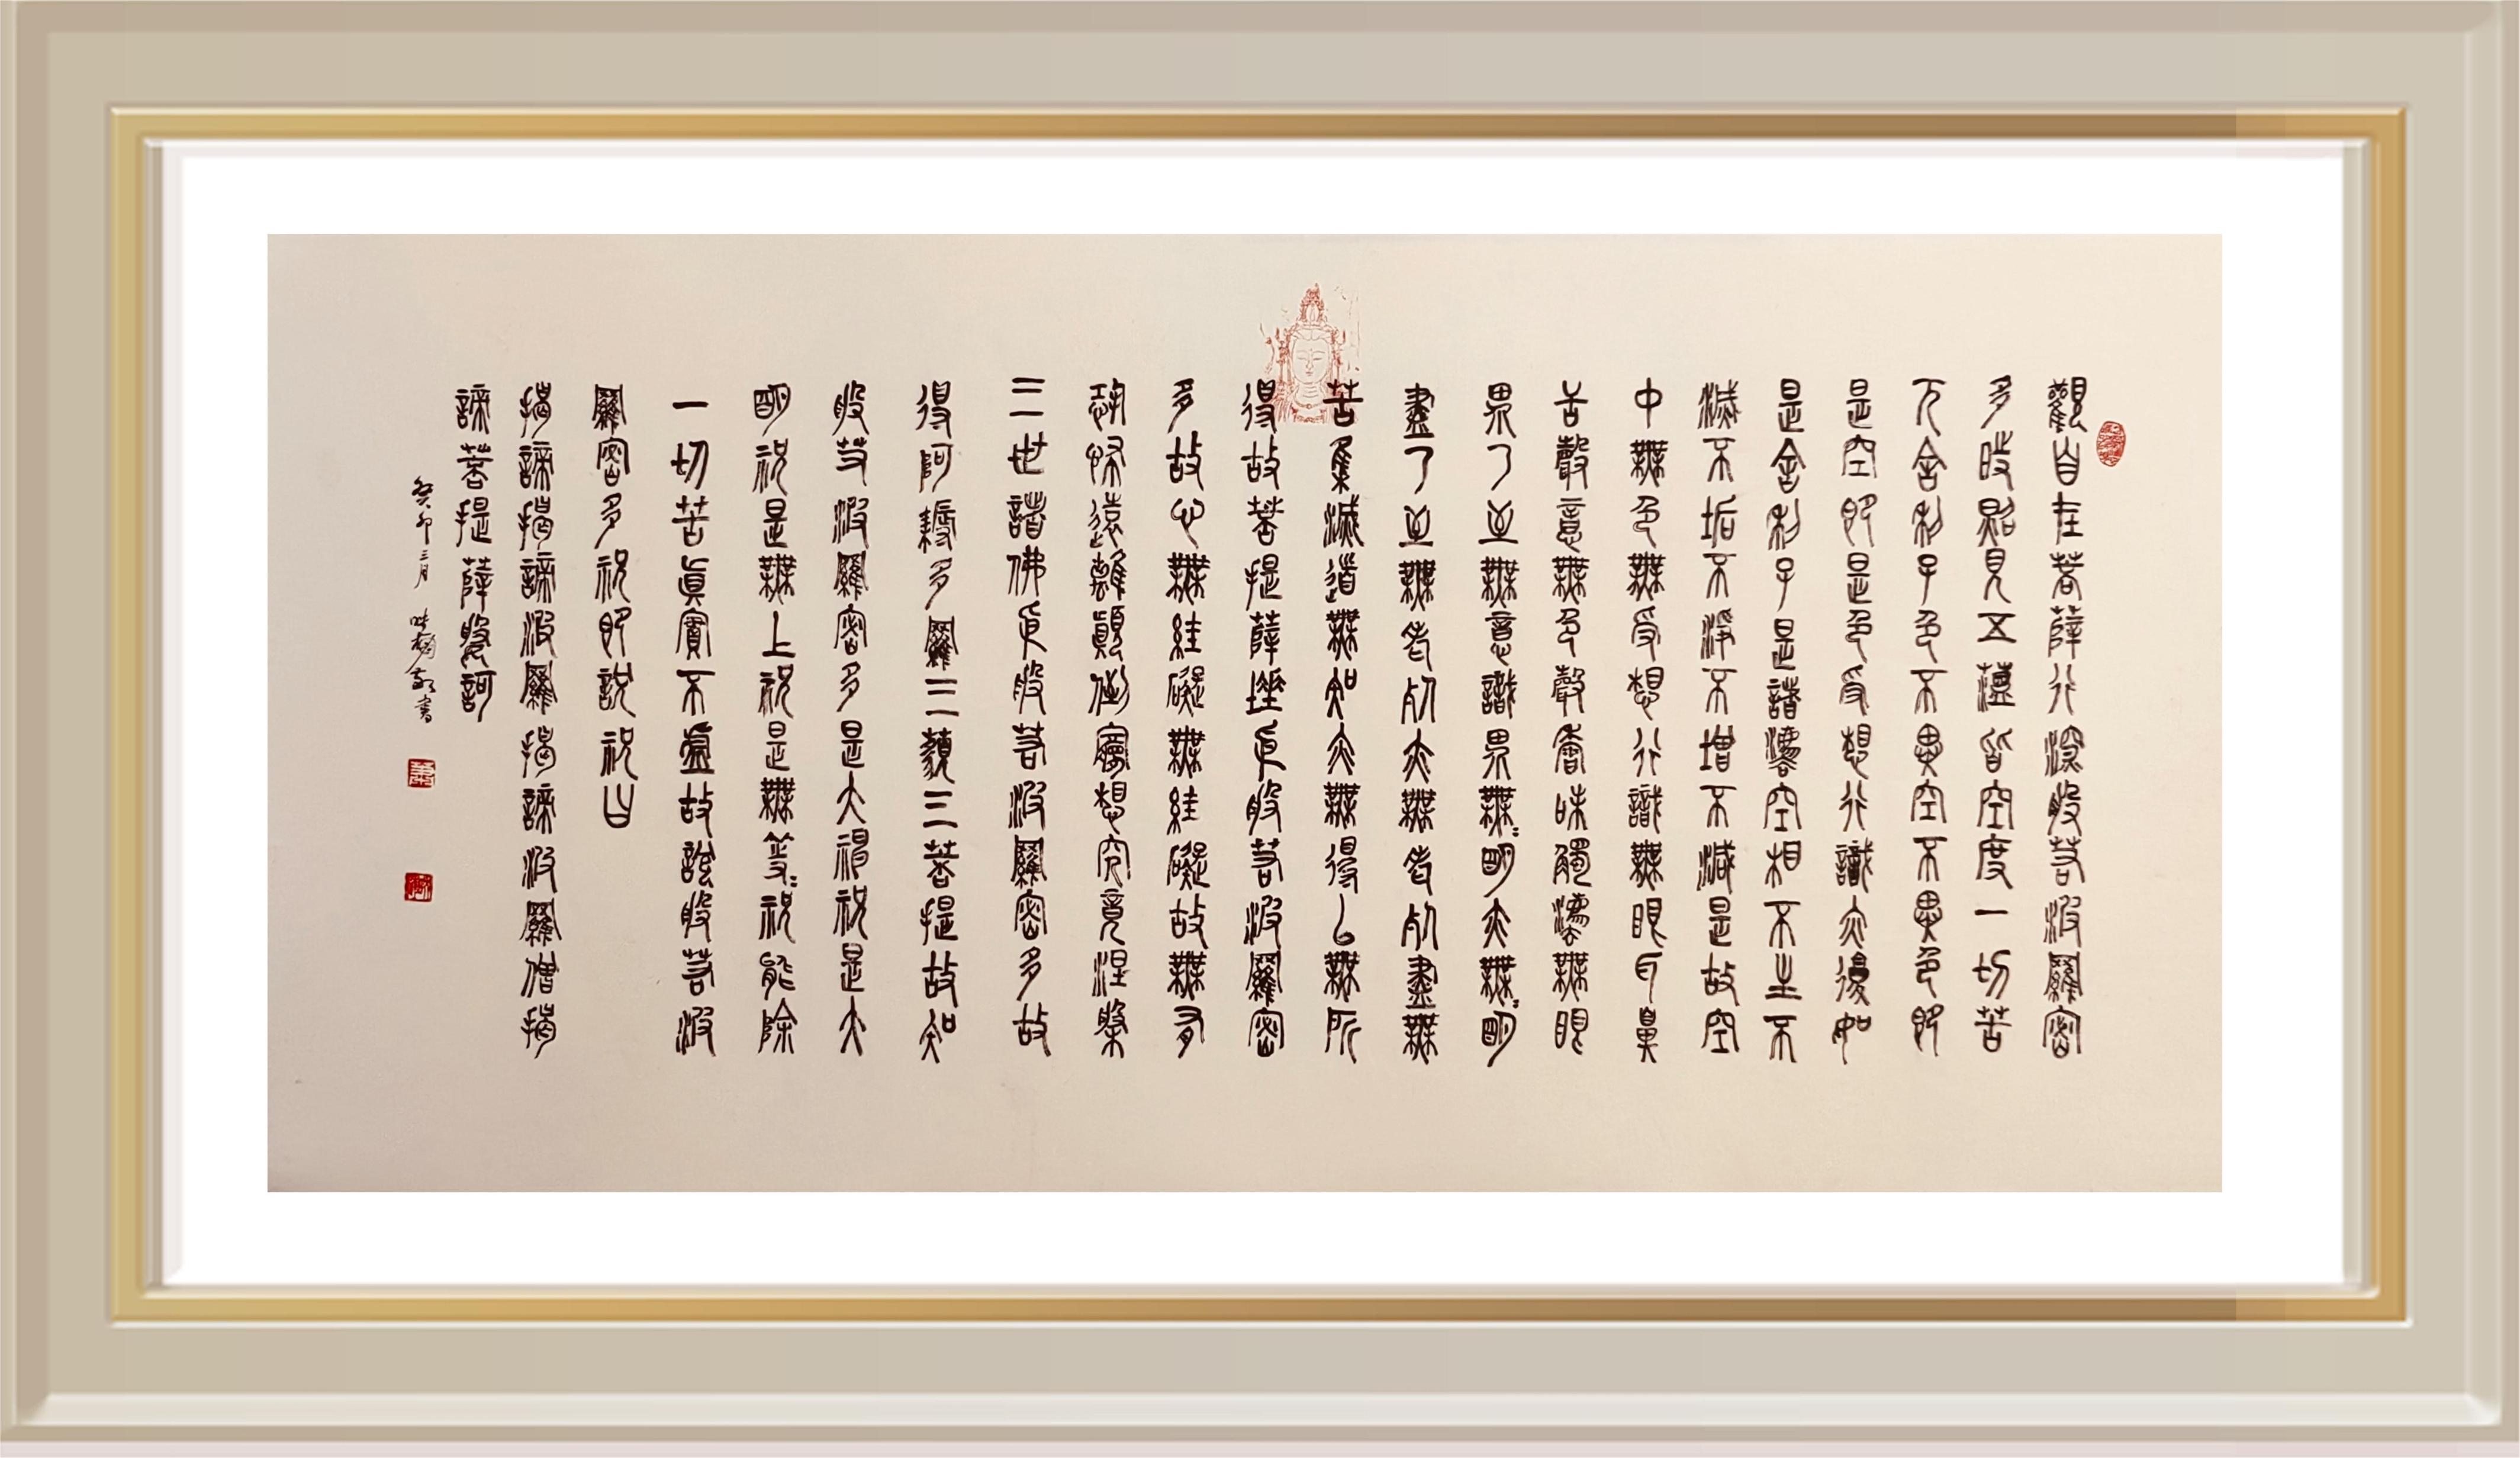 觀自在菩薩行深般若波羅密
多時照見五蘊皆空度一切苦
厄舍利子色不異空不異色即
是空即是色受想行識亦復如
是舍利子是諸法空相不生不
滅不垢不淨不增不減是故空
中無色無受想行識無眼耳鼻
舌聲意無色聲香味觸法無眼
界乃至無意識界無〻明亦無〻明
盡乃至無老死亦無老死盡無
苦集滅道無知亦無得以無所
得故菩提薩埵依般若波羅密
多故心無罣礙無罣礙故無有
恐怖遠離顛倒夢想究竟涅槃
三世諸佛依般若波羅密多故
得阿耨多羅三藐三菩提故知
般若波羅密多是大神祝是大
明祝是無上祝是無等〻祝能除
一切苦真實不虛故說般若波
羅密多祝即說祝曰
揭諦揭諦波羅揭諦波羅僧揭
諦菩提薩婆訶
癸卯三月 敬書